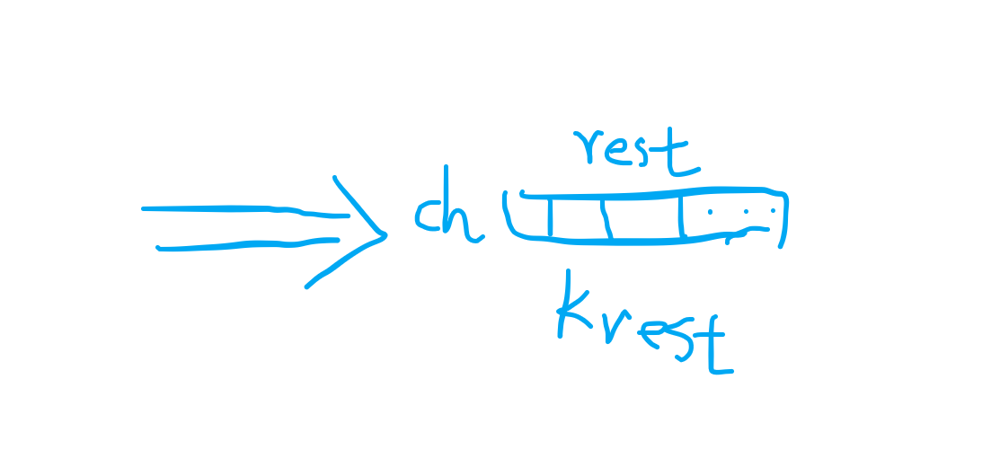 rest
ch
krest